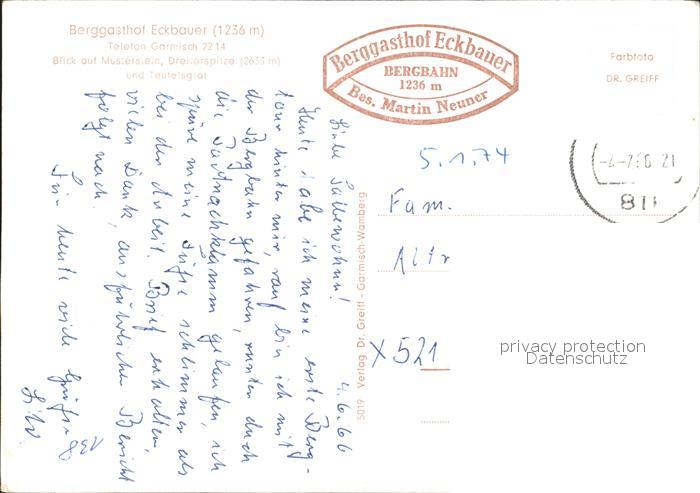 Berggasthof Eckbauer (1236 m)
Telefon Garmisch 2214
Blick auf Musterstein, Dreitorspitze (2633 m)
und Teufelsgrat
Berggasthof Eckbauer
BERGBAHN
1236 m
Bes. Martin Neuner
Farbfoto
DR. GREIFF
5.1.74
811
Fam.
X 521
privacy protection
Datenschutz
5019 Verlag Dr. Greiff - Garmisch-Wamberg
4.6.66
Liebe
Heute habe ich meine erste Berg-
tour hinter mir, rauf bin ich mit
der Bergbahn gefahren, runter durch
die Partnachklamm gelaufen, ich
spüre meine Füße schlimmer als
bei der Arbeit. Brief erhalten,
vielen Dank, ausführlicher Bericht
folgt nach.
Für heute viele Grüße